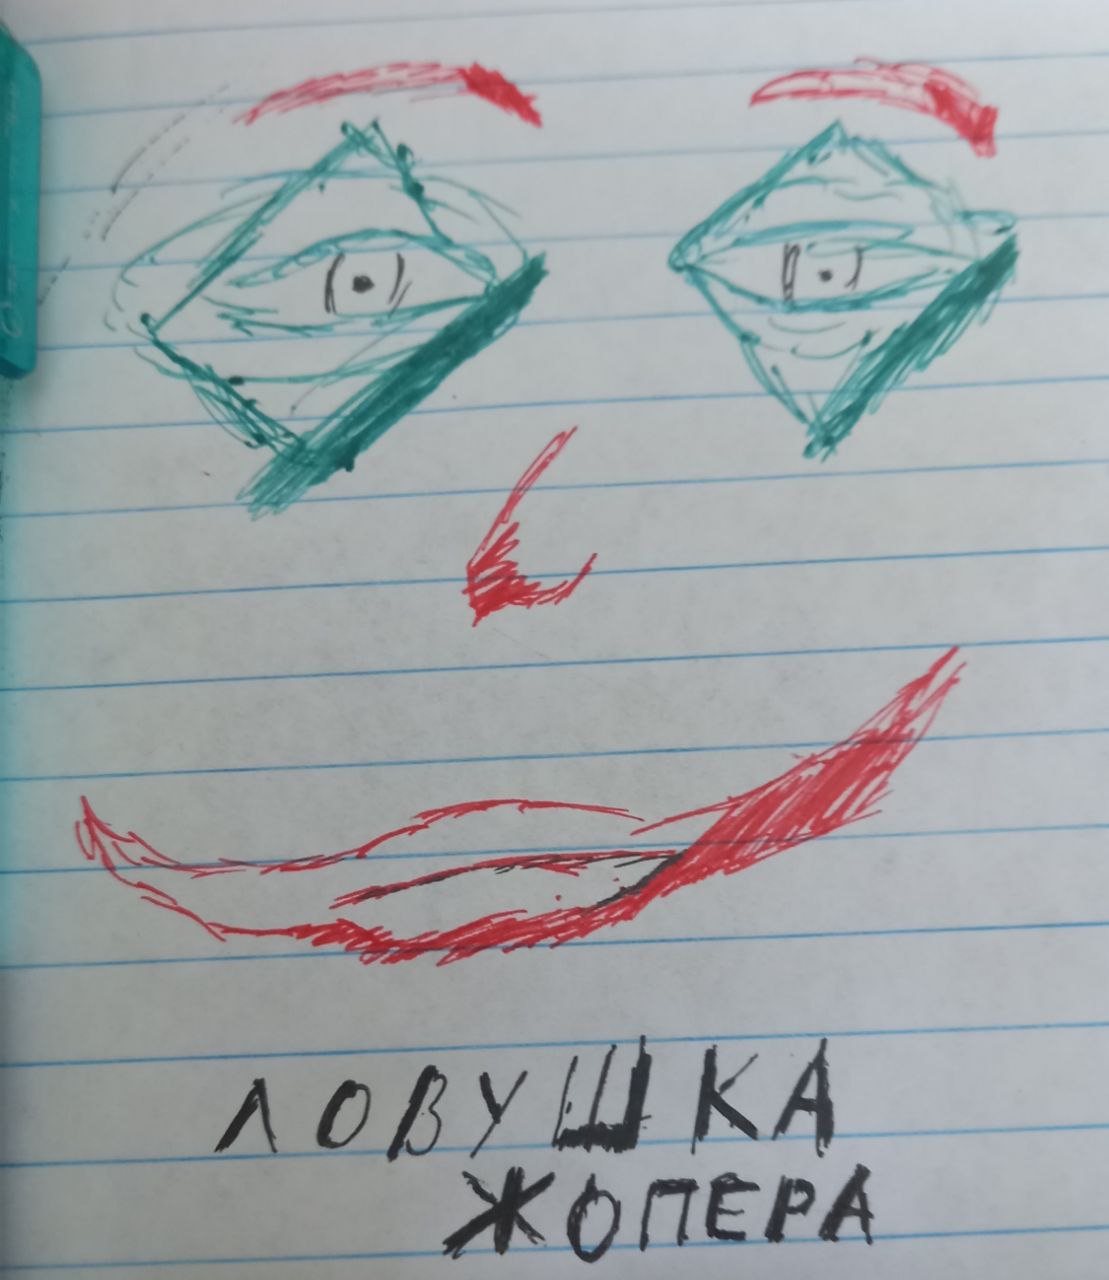 ЛОВУШКА
ЖОПЕРА